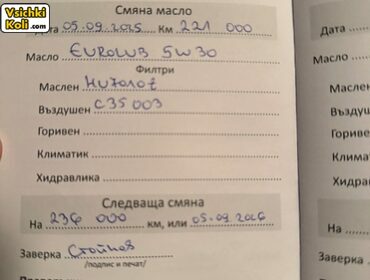 Vsichki
Koli.com
Смяна масло
Дата 05.09.2025 Км 221 000
Масло EUROLUB 5W30
Филтри
Маслен HU7010Z
Въздушен C35003
Горивен
Климатик
Хидравлика
Следваща смяна
На 236 000 км, или 05.09.2026
Заверка Стойнов
/подпис и печат/
Дата
Масло
Маслен
Въздуш
Горивен
Климати
Хидравл
На
Заверка